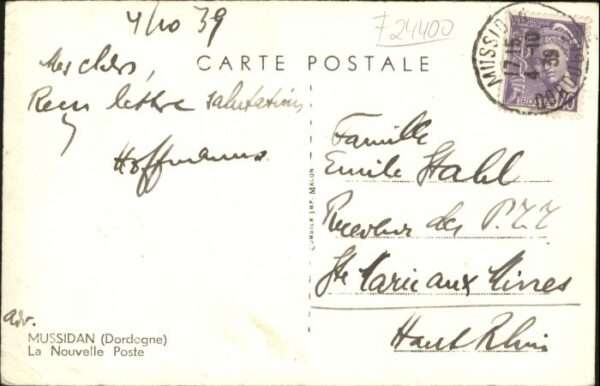 4/10 39
F24400
MUSSIDAN
17-15
4-10
39
DORDOGNE
CARTE POSTALE
Mes chers,
Reçu lettre salutations
Hoffmanns
Famille
Emile Stahl
Receveur des P.T.T
Ste Marie aux Mines
Haut Rhin
COMBIER IMP. MACON
MUSSIDAN (Dordogne)
La Nouvelle Poste